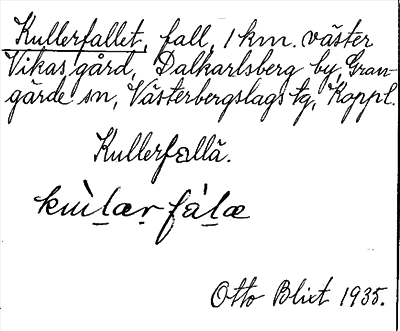 Kullerfallet, fall, 1 km. väster
Vikas gård, Dalkarlsberg by, Gran-
gärde sn, Västerbergslags tg, Koppl.
Kullerfallä.
Otto Blixt 1935.